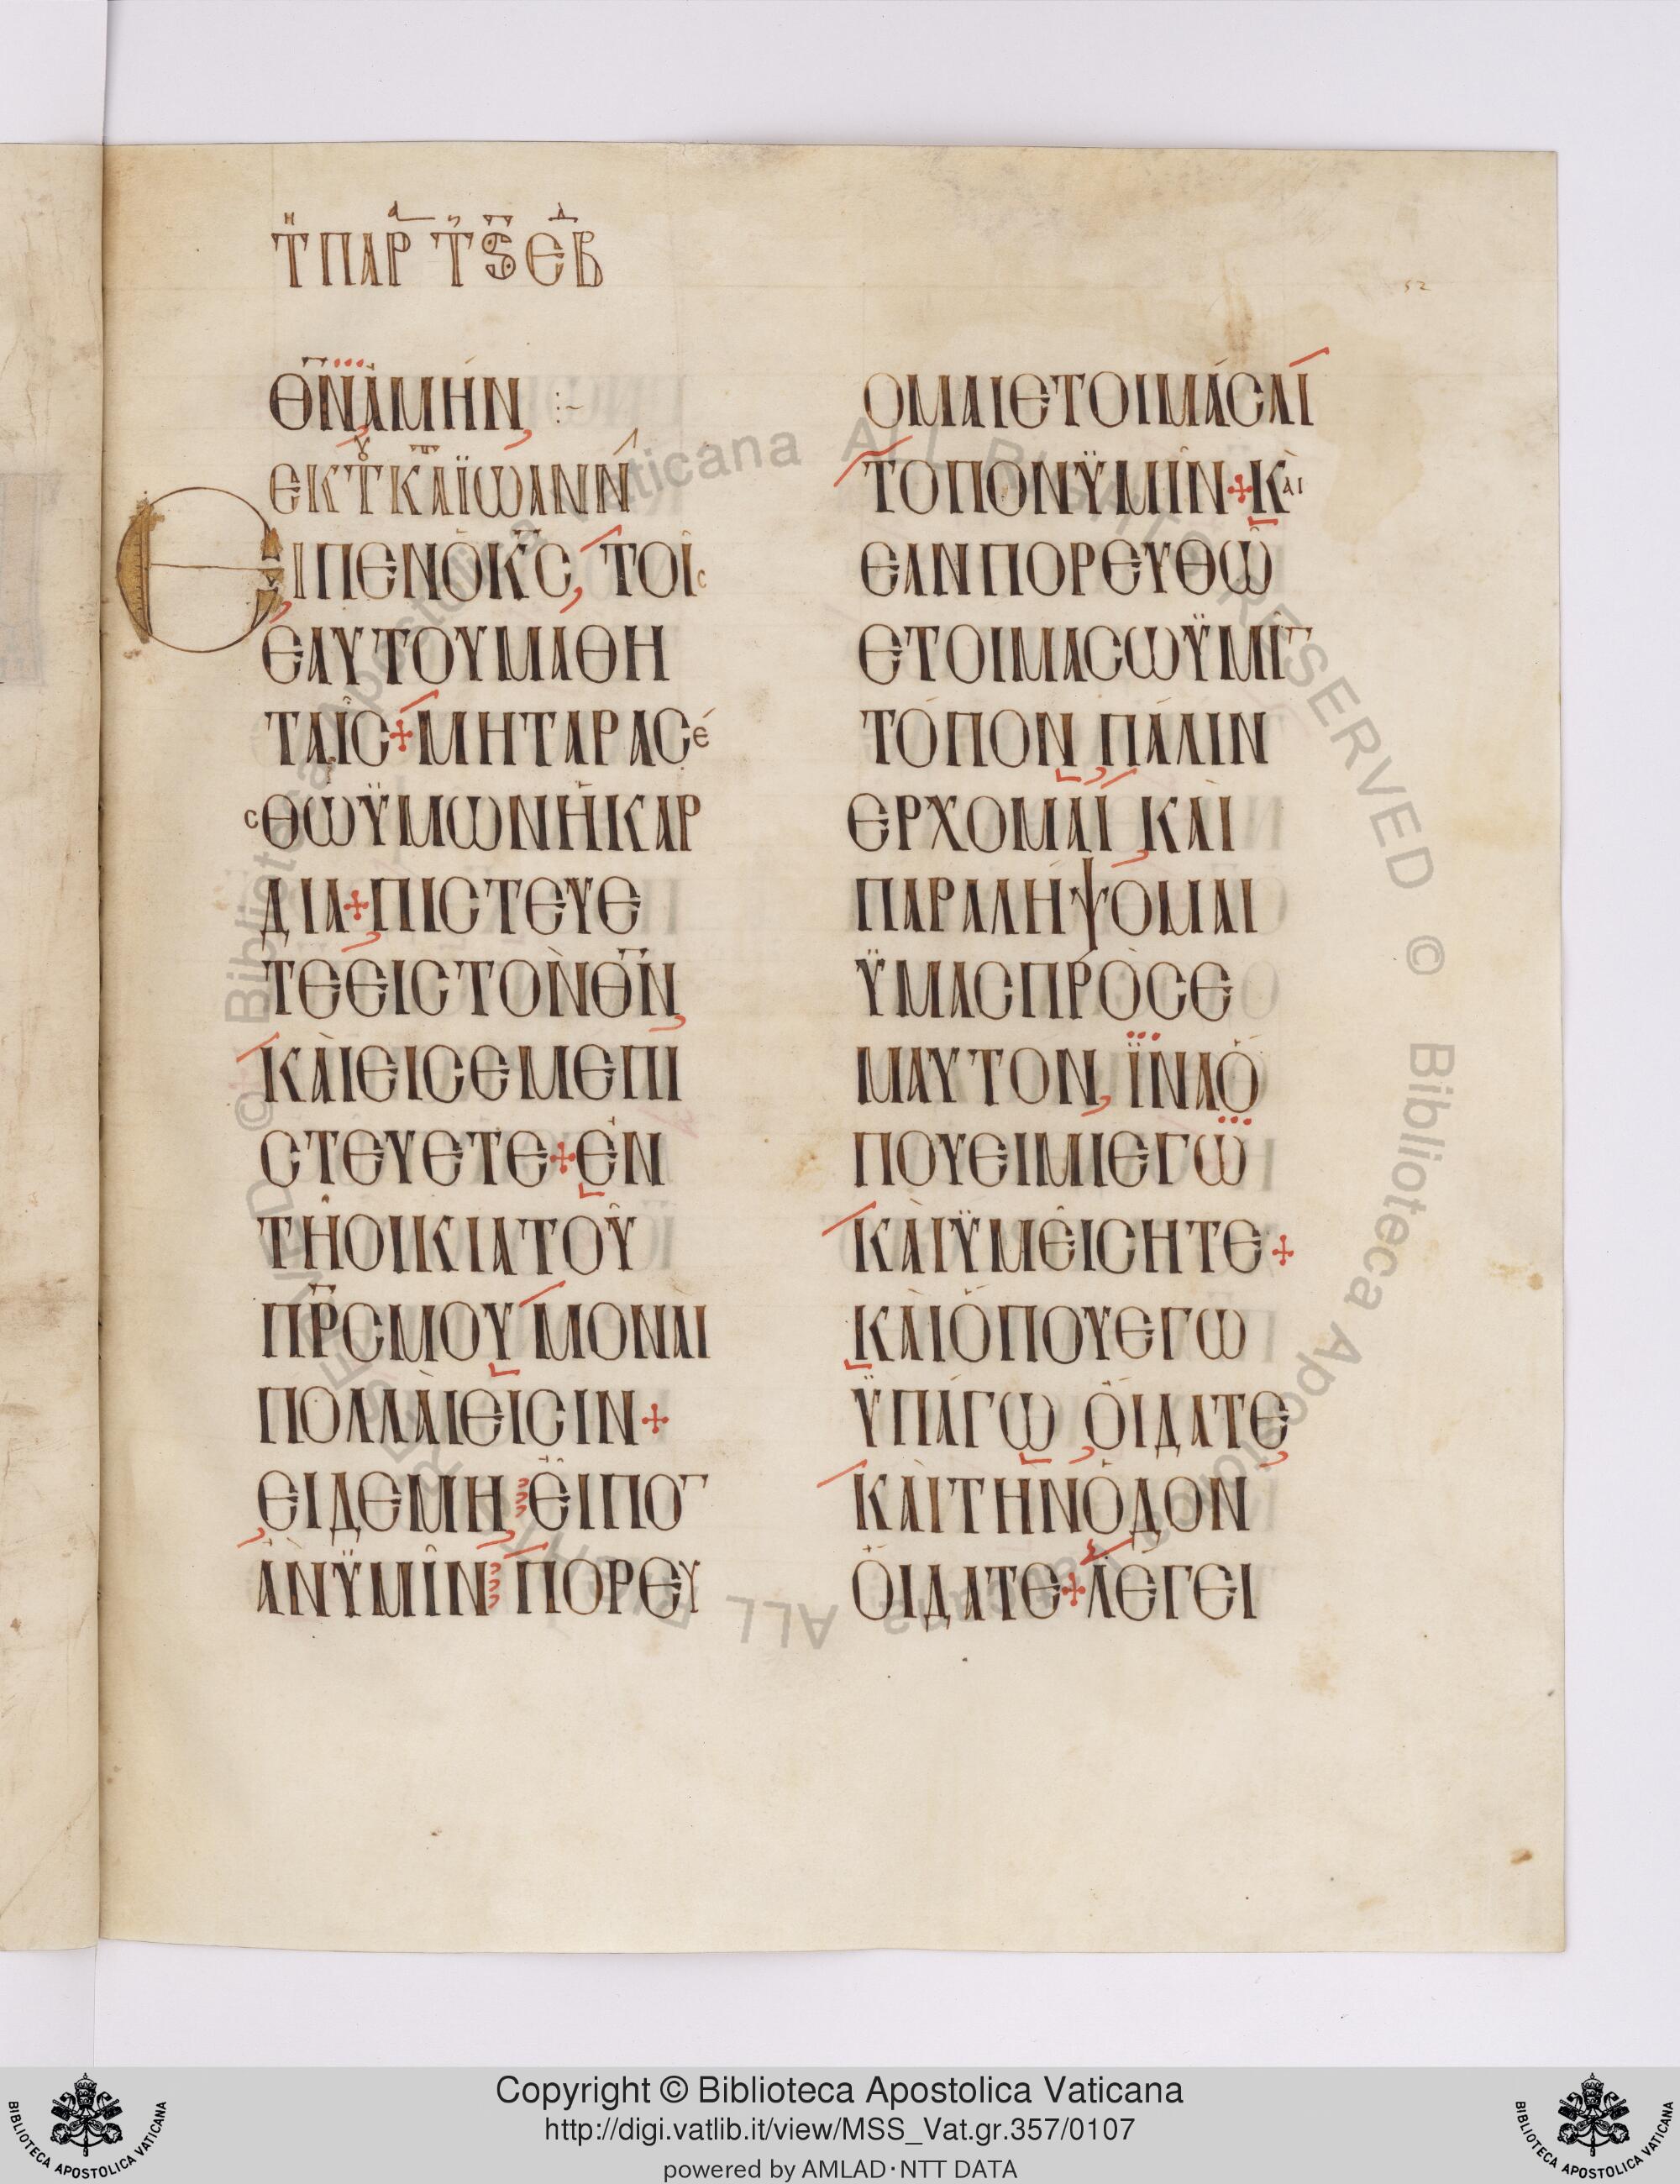 Τῌ ΠΑΡ Τῌ Ϛ ΕΒΔ
52
ΘΝ ΑΜΗΝ
ΕΚ Τ Κ ΑΪΩΑΝΝ
ΕΙΠΕΝ Ο ΚС, ΤΟΙС
ΕΑΥΤΟΥ ΜΑΘΗ
ΤΑΙС + ΜΗ ΤΑΡΑСЄ
СΘΩ ΫΜΩΝ Η ΚΑΡ
ΔΙΑ + ΠΙСΤΕΥΕ
ΤΕ ΕΙС ΤΟΝ ΘΝ,
ΚΑΙ ΕΙС ΕΜΕ ΠΙ
СΤΕΥΕΤΕ + ΕΝ
ΤΗ ΟΙΚΙΑ ΤΟΥ
ΠΡС ΜΟΥ ΜΟΝΑΙ
ΠΟΛΛΑΙ ΕΙСΙΝ +
ΕΙ ΔΕ ΜΗ, ΕΙΠΟ¯
ΑΝ ΫΜΙΝ ΠΟΡΕΥ
ΟΜΑΙ ΕΤΟΙΜΑСΑΙ
ΤΟΠΟΝ ΫΜΙΝ + ΚΑΙ
ΕΑΝ ΠΟΡΕΥΘΩ
ΕΤΟΙΜΑСΩ ΫΜΙ¯
ΤΟΠΟΝ ΠΑΛΙΝ
ΕΡΧΟΜΑΙ, ΚΑΙ
ΠΑΡΑΛΗΨΟΜΑΙ
ΫΜΑС ΠΡΟС Ε
ΜΑΥΤΟΝ, ΪΝΑ Ο
ΠΟΥ ΕΙΜΙ ΕΓΩ
ΚΑΙ ΫΜΕΙС ΗΤΕ +
ΚΑΙ ΟΠΟΥ ΕΓΩ
ΫΠΑΓΩ, ΟΙΔΑΤΕ,
ΚΑΙ ΤΗΝ ΟΔΟΝ
ΟΙΔΑΤΕ + ΛΕΓΕΙ
© Biblioteca Apostolica Vaticana ALL RIGHTS RESERVED
Copyright © Biblioteca Apostolica Vaticana
http://digi.vatlib.it/view/MSS_Vat.gr.357/0107
powered by AMLAD·NTT DATA
BIBLIOTECA APOSTOLICA VATICANA
BIBLIOTECA APOSTOLICA VATICANA